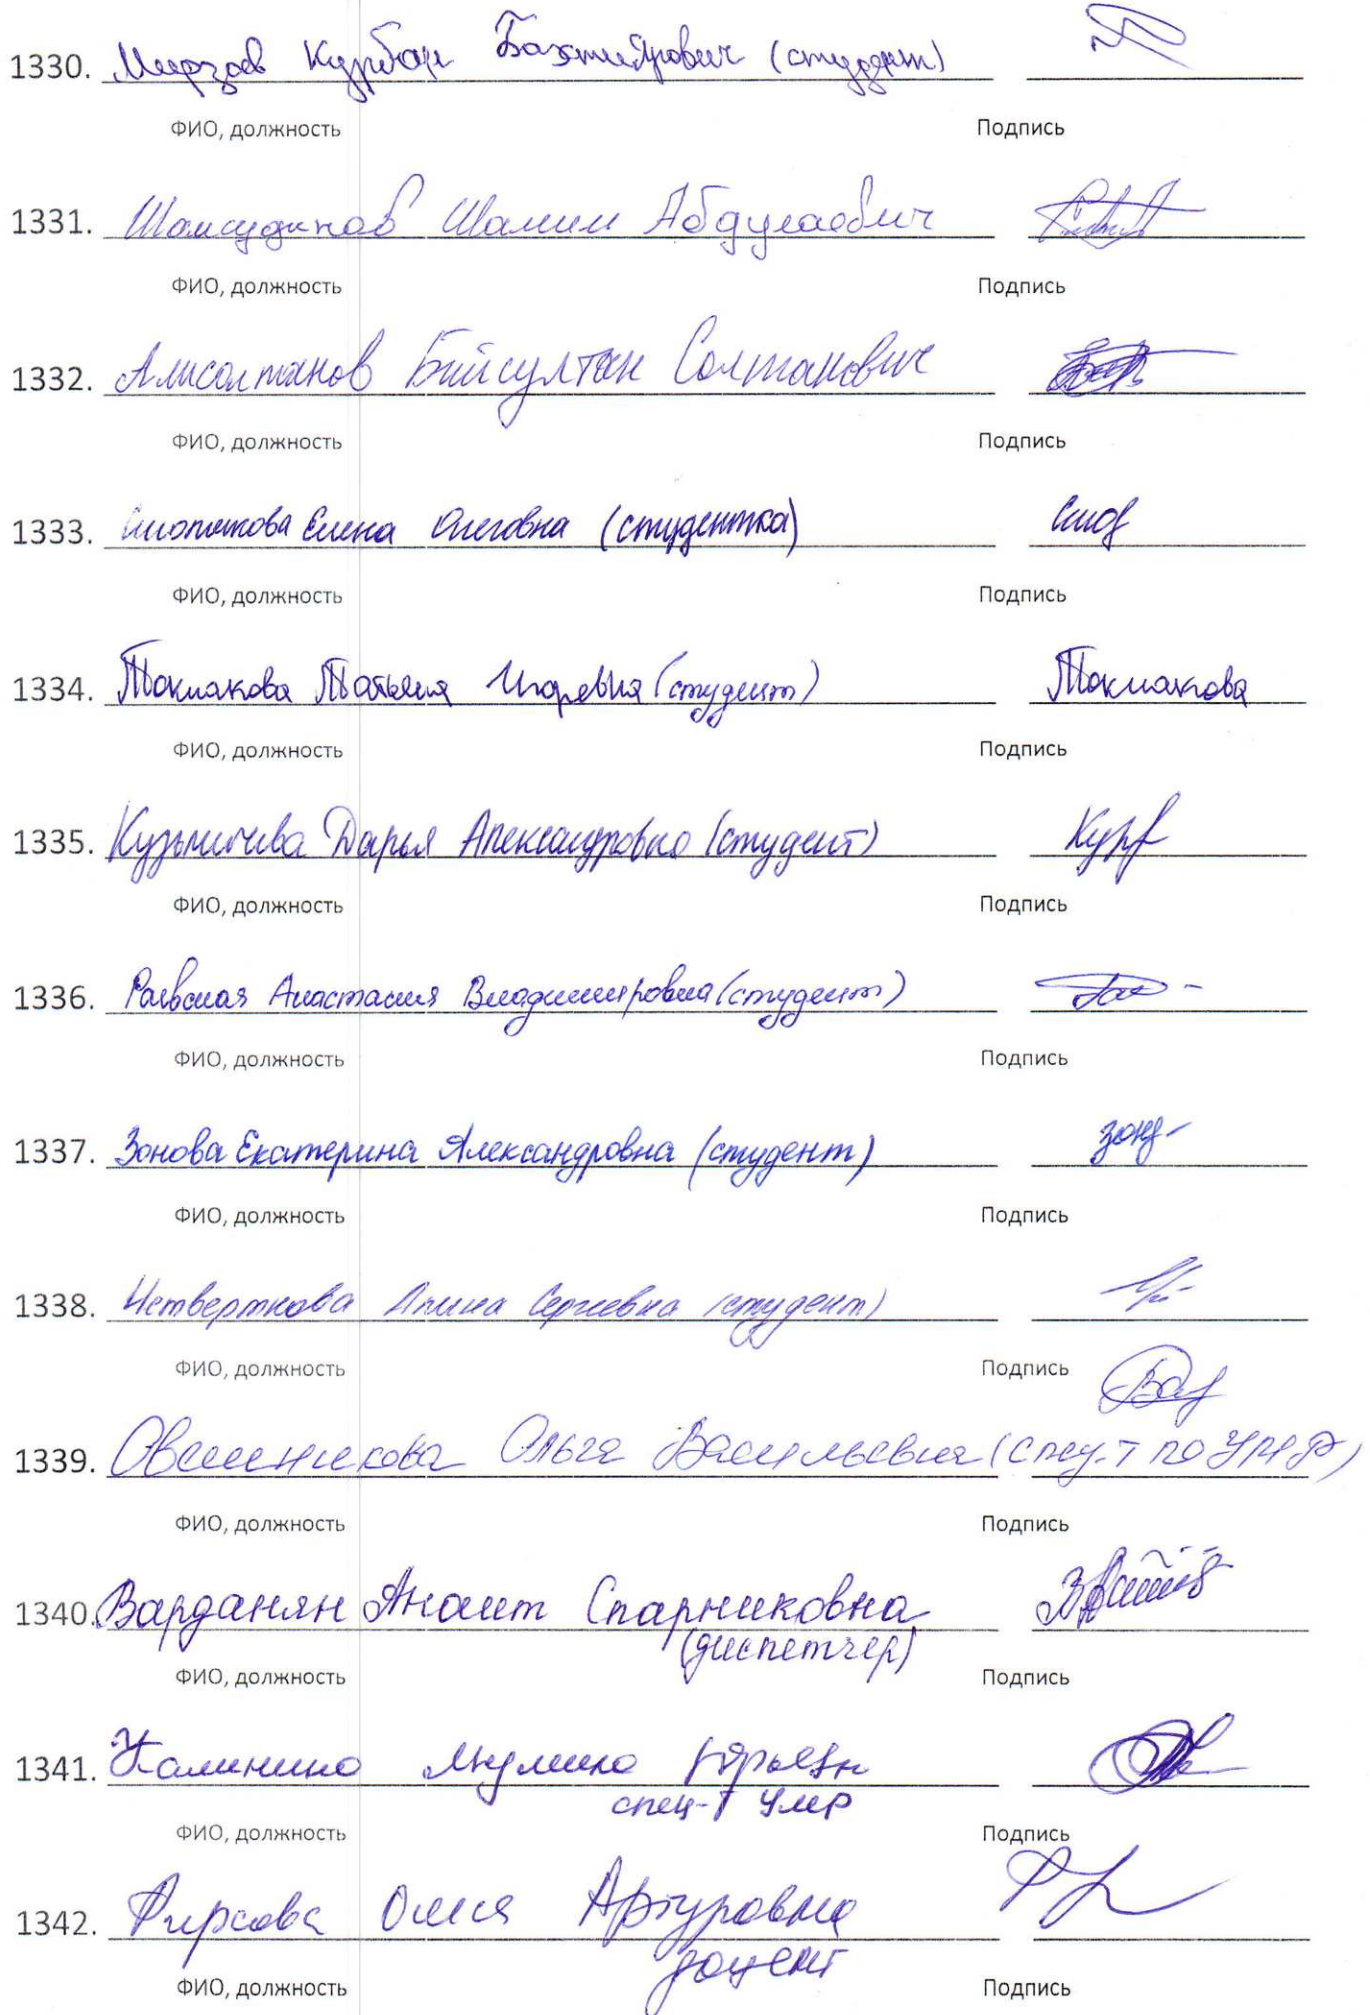 1330. Мирзоев Курбон Бахтиярович (студент)
ФИО, должность Подпись
1331. Шамсудинов Шамил Абдулаевич
ФИО, должность Подпись
1332. Алисолтанов Бийсултан Солтанович
ФИО, должность Подпись
1333. Елена Олеговна (студентка)
ФИО, должность Подпись
1334. Токмакова Татьяна Игоревна (студент) Токмакова
ФИО, должность Подпись
1335. Кузьмичева Дарья Александровна (студент)
ФИО, должность Подпись
1336. Раевская Анастасия Владимировна (студент)
ФИО, должность Подпись
1337. Зонова Екатерина Александровна (студент)
ФИО, должность Подпись
1338. Четверткова Алина Сергеевна (студент)
ФИО, должность Подпись
1339. Овсянникова Ольга Васильевна
ФИО, должность Подпись
1340. Варданян Анаит Спарниковна
(диспетчер)
ФИО, должность Подпись
1341. Калинина
спец-т УМР
ФИО, должность Подпись
1342. Фирсова Олеся Артуровна
доцент
ФИО, должность Подпись